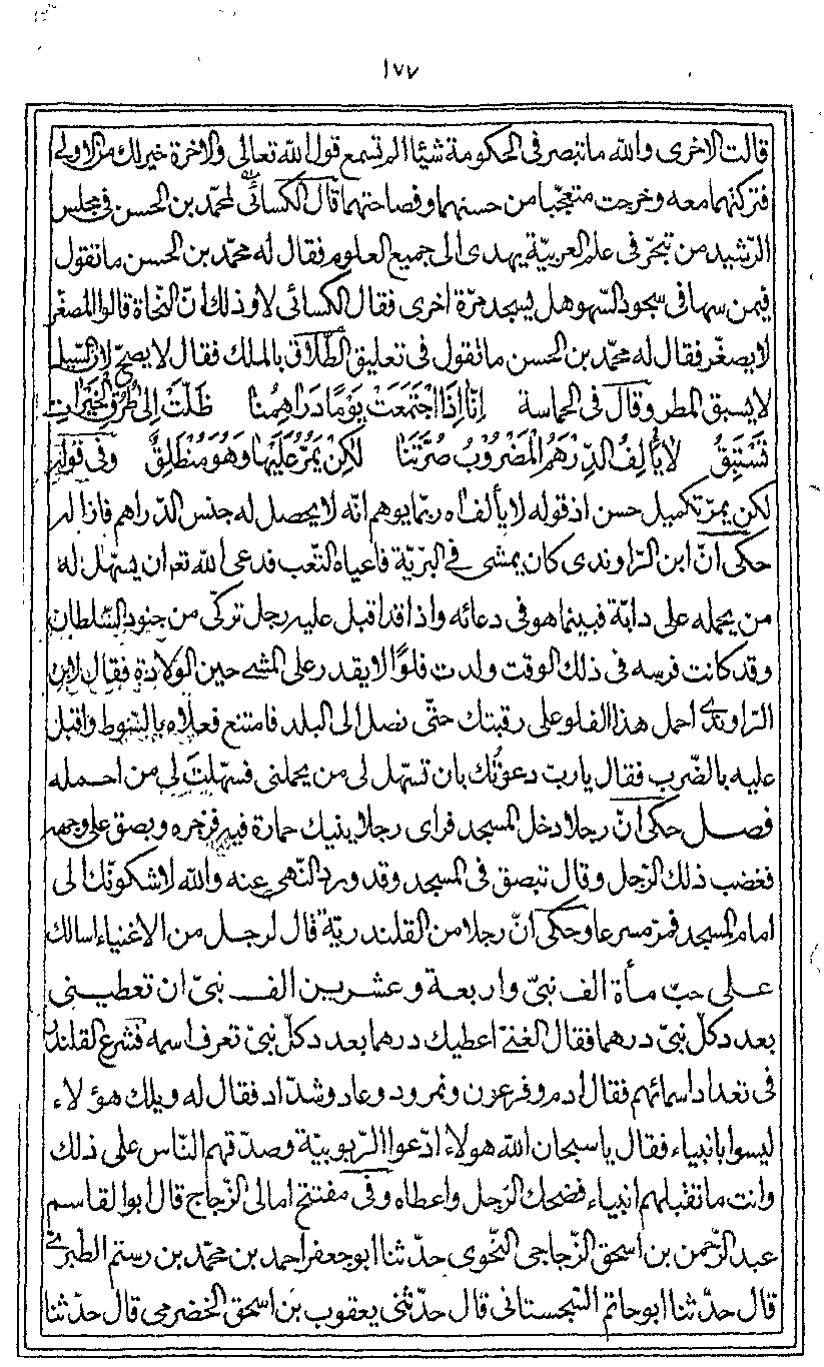 ١٧٧
قالت الاخرى والله ما تبصر فى الحكومة شيئا الم تسمع قول الله تعالى وللاخرة خير لك من الاولى
فتركتهما معه وخرجت متعجبا من حسنهما وفصاحتهما قال الكسائى لمحمّد بن الحسن فى مجلس
الرّشيد من تبحّر فى علم العربيّة يهدى الى جميع العلوم فقال له محمّد بن الحسن ما تقول
فيمن سها فى سجود السّهو هل يسجد مرّة اخرى فقال الكسائى لا وذلك انّ النّحاة قالوا المصغّر
لا يصغّر فقال له محمّد بن الحسن ما تقول فى تعليق الطّلاق بالملك فقال لا يصحّ لان السّيل
لا يسبق المطر وقال فى الحماسة اِنّا اِذَا اجْتَمَعَتْ يَوْمًا دَرَاهِمُنا ظَلَّتْ اِلى طُرُقِ الْخَيْرَاتِ
تَسْتَبِقُ لا يَأْلَفُ الدِّرْهَمُ الْمَضْرُوبُ صُرَّتَنَا لٰكِنْ يَمُرُّ عَلَيْها وَهُوَ مُنْطَلِقٌ وفى قوله
لكن يمرّ تكميل حسن اذ قوله لا يألف اه ربّما يوهم انّه لا يحصل له جنس الدّراهم فازاله
حكى انّ ابن الرّاوندى كان يمشى فى البريّة فاعياه التّعب فدعى الله تع ان يسهّل له
من يحمله على دابّة فبينما هو فى دعائه واذا قد اقبل عليه رجل تركىّ من جنود السّلطان
وقد كانت فرسه فى ذلك الوقت ولدت فلوّا لا يقدر على المشى حين الولادة فقال لابن
الرّاوندى احمل هذا الفلو على رقبتك حتّى نصل الى البلد فامتنع فعلاه بالسّوط واقبل
عليه بالضّرب فقال يا ربّ دعوتُك بان تسهّل لى من يحملنى فسهّلتَ لى من احمله
فصل حكى انّ رجلا دخل المسجد فراى رجلا ينيك حمارة فيه فزجره وبصق على وجهه
فغضب ذلك الرّجل وقال تبصق فى المسجد وقد ورد النّهى عنه والله لاشكونّك الى
امام المسجد فمرّ مسرعا وحكى انّ رجلا من القلندريّة قال لرجل من الاغنياء اسالك
على حبّ مأة الف نبىّ واربعة وعشرين الف نبىّ ان تعطينى
بعدد كلّ نبىّ درهما فقال الغنى اعطيك درهما بعدد كلّ نبىّ تعرف اسمه فشرع القلندر
فى تعداد اسمائهم فقال ادم وفرعون ونمرود وعاد وشدّاد فقال له ويلك هؤلاء
ليسوا بانبياء فقال يا سبحان الله هولاء ادّعوا الرّبوبيّة وصدّقهم النّاس على ذلك
وانت ما تقبلهم انبياء فضحك الرّجل واعطاه وفى مفتتح امالى الزّجاج قال ابو القاسم
عبد الرّحمن بن اسحق الزّجاجى النّحوى حدّثنا ابو جعفر احمد بن محمّد بن رستم الطّبرىّ
قال حدّثنا ابو حاتم السّجستانى قال حدّثنى يعقوب بن اسحق الحضرمى قال حدّثنا